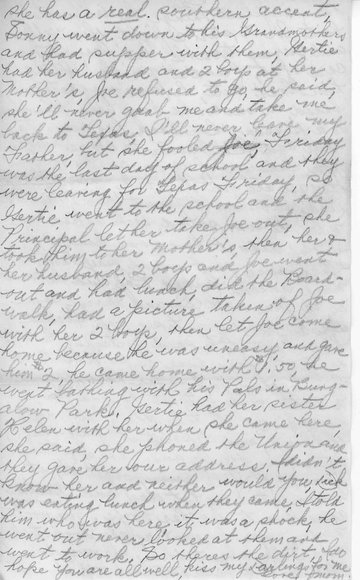 she has a real southern accent,
Sonny went down to his Grandmothers
and had supper with them, Gertie
had her husband and 2 boys at her
Mother's, Joe refused to go, he said,
she'll never grab me and take me
back to Texas, I'll never leave my
Father, but she fooled Joe, Friday
was the last day of school, and they
were leaving for Texas Friday, so
Gertie went to the school and the
Principal let her take Joe out, she
took him to her Mother's, then her &
her husband, 2 boys and Joe went
out and had lunch, did the Board-
walk, had a picture taken of Joe
with her 2 boys, then let Joe come
home because he was uneasy, and gave
him 2, he came home with $1.50, he
went bathing with his Pals in Bung-
alow Park. Gertie had her sister
Helen with her when she came here,
she said, she phoned the Union and
they gave her our address. I didn't
know her and neither would you, Dick
was eating lunch when they came, I told
him who was here, it was a shock, he
went out never looked at them and
went to work. So theres the dirt,
hope you are all well, kiss my darlings for me